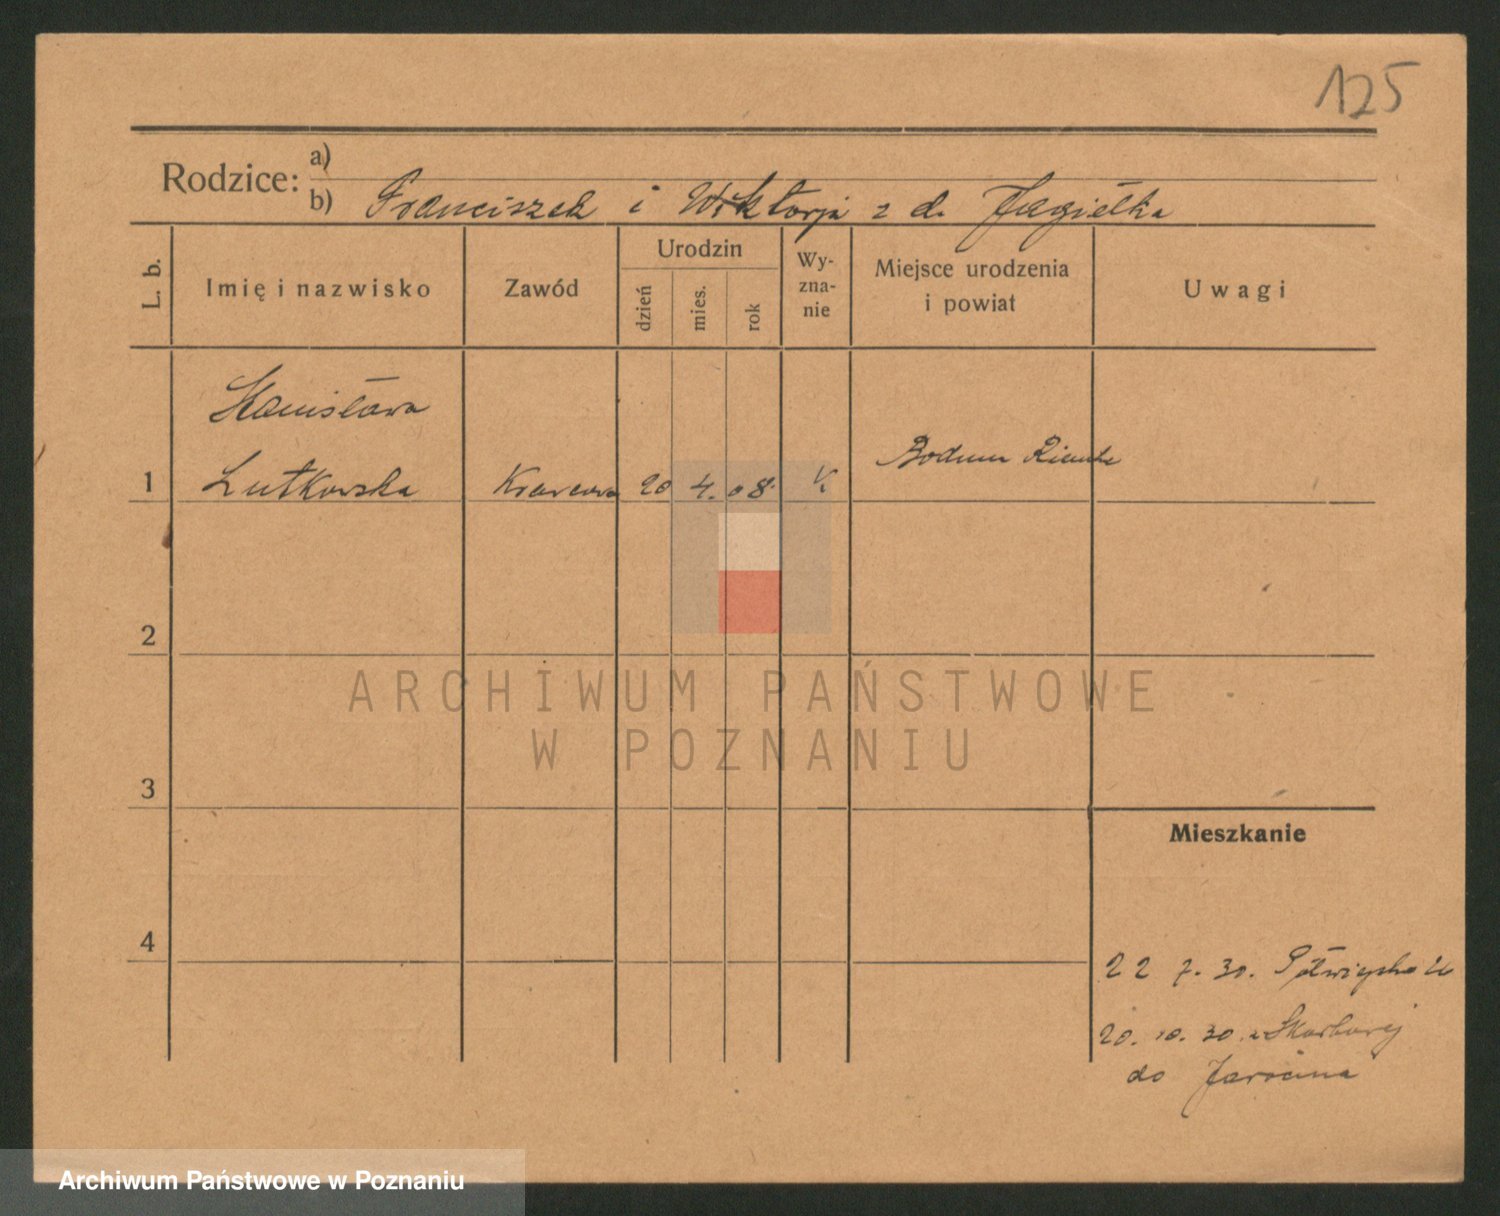 125
Rodzice: a)
b) Franciszek i Wiktorja z d. Jagiełka
L. b.
Imię i nazwisko
Zawód
Urodzin
dzień
mies.
rok
Wy-
zna-
nie
Miejsce urodzenia
i powiat
Uwagi
Stanisława
1 Lutkowska Krawcowa 20 4. 08. k.
Bodum
2
3
4
Mieszkanie
22 7. 30. Półwiejska
20. 10. 30. z Skarbowej
do Jarocina
ARCHIWUM PAŃSTWOWE
W POZNANIU
Archiwum Państwowe w Poznaniu